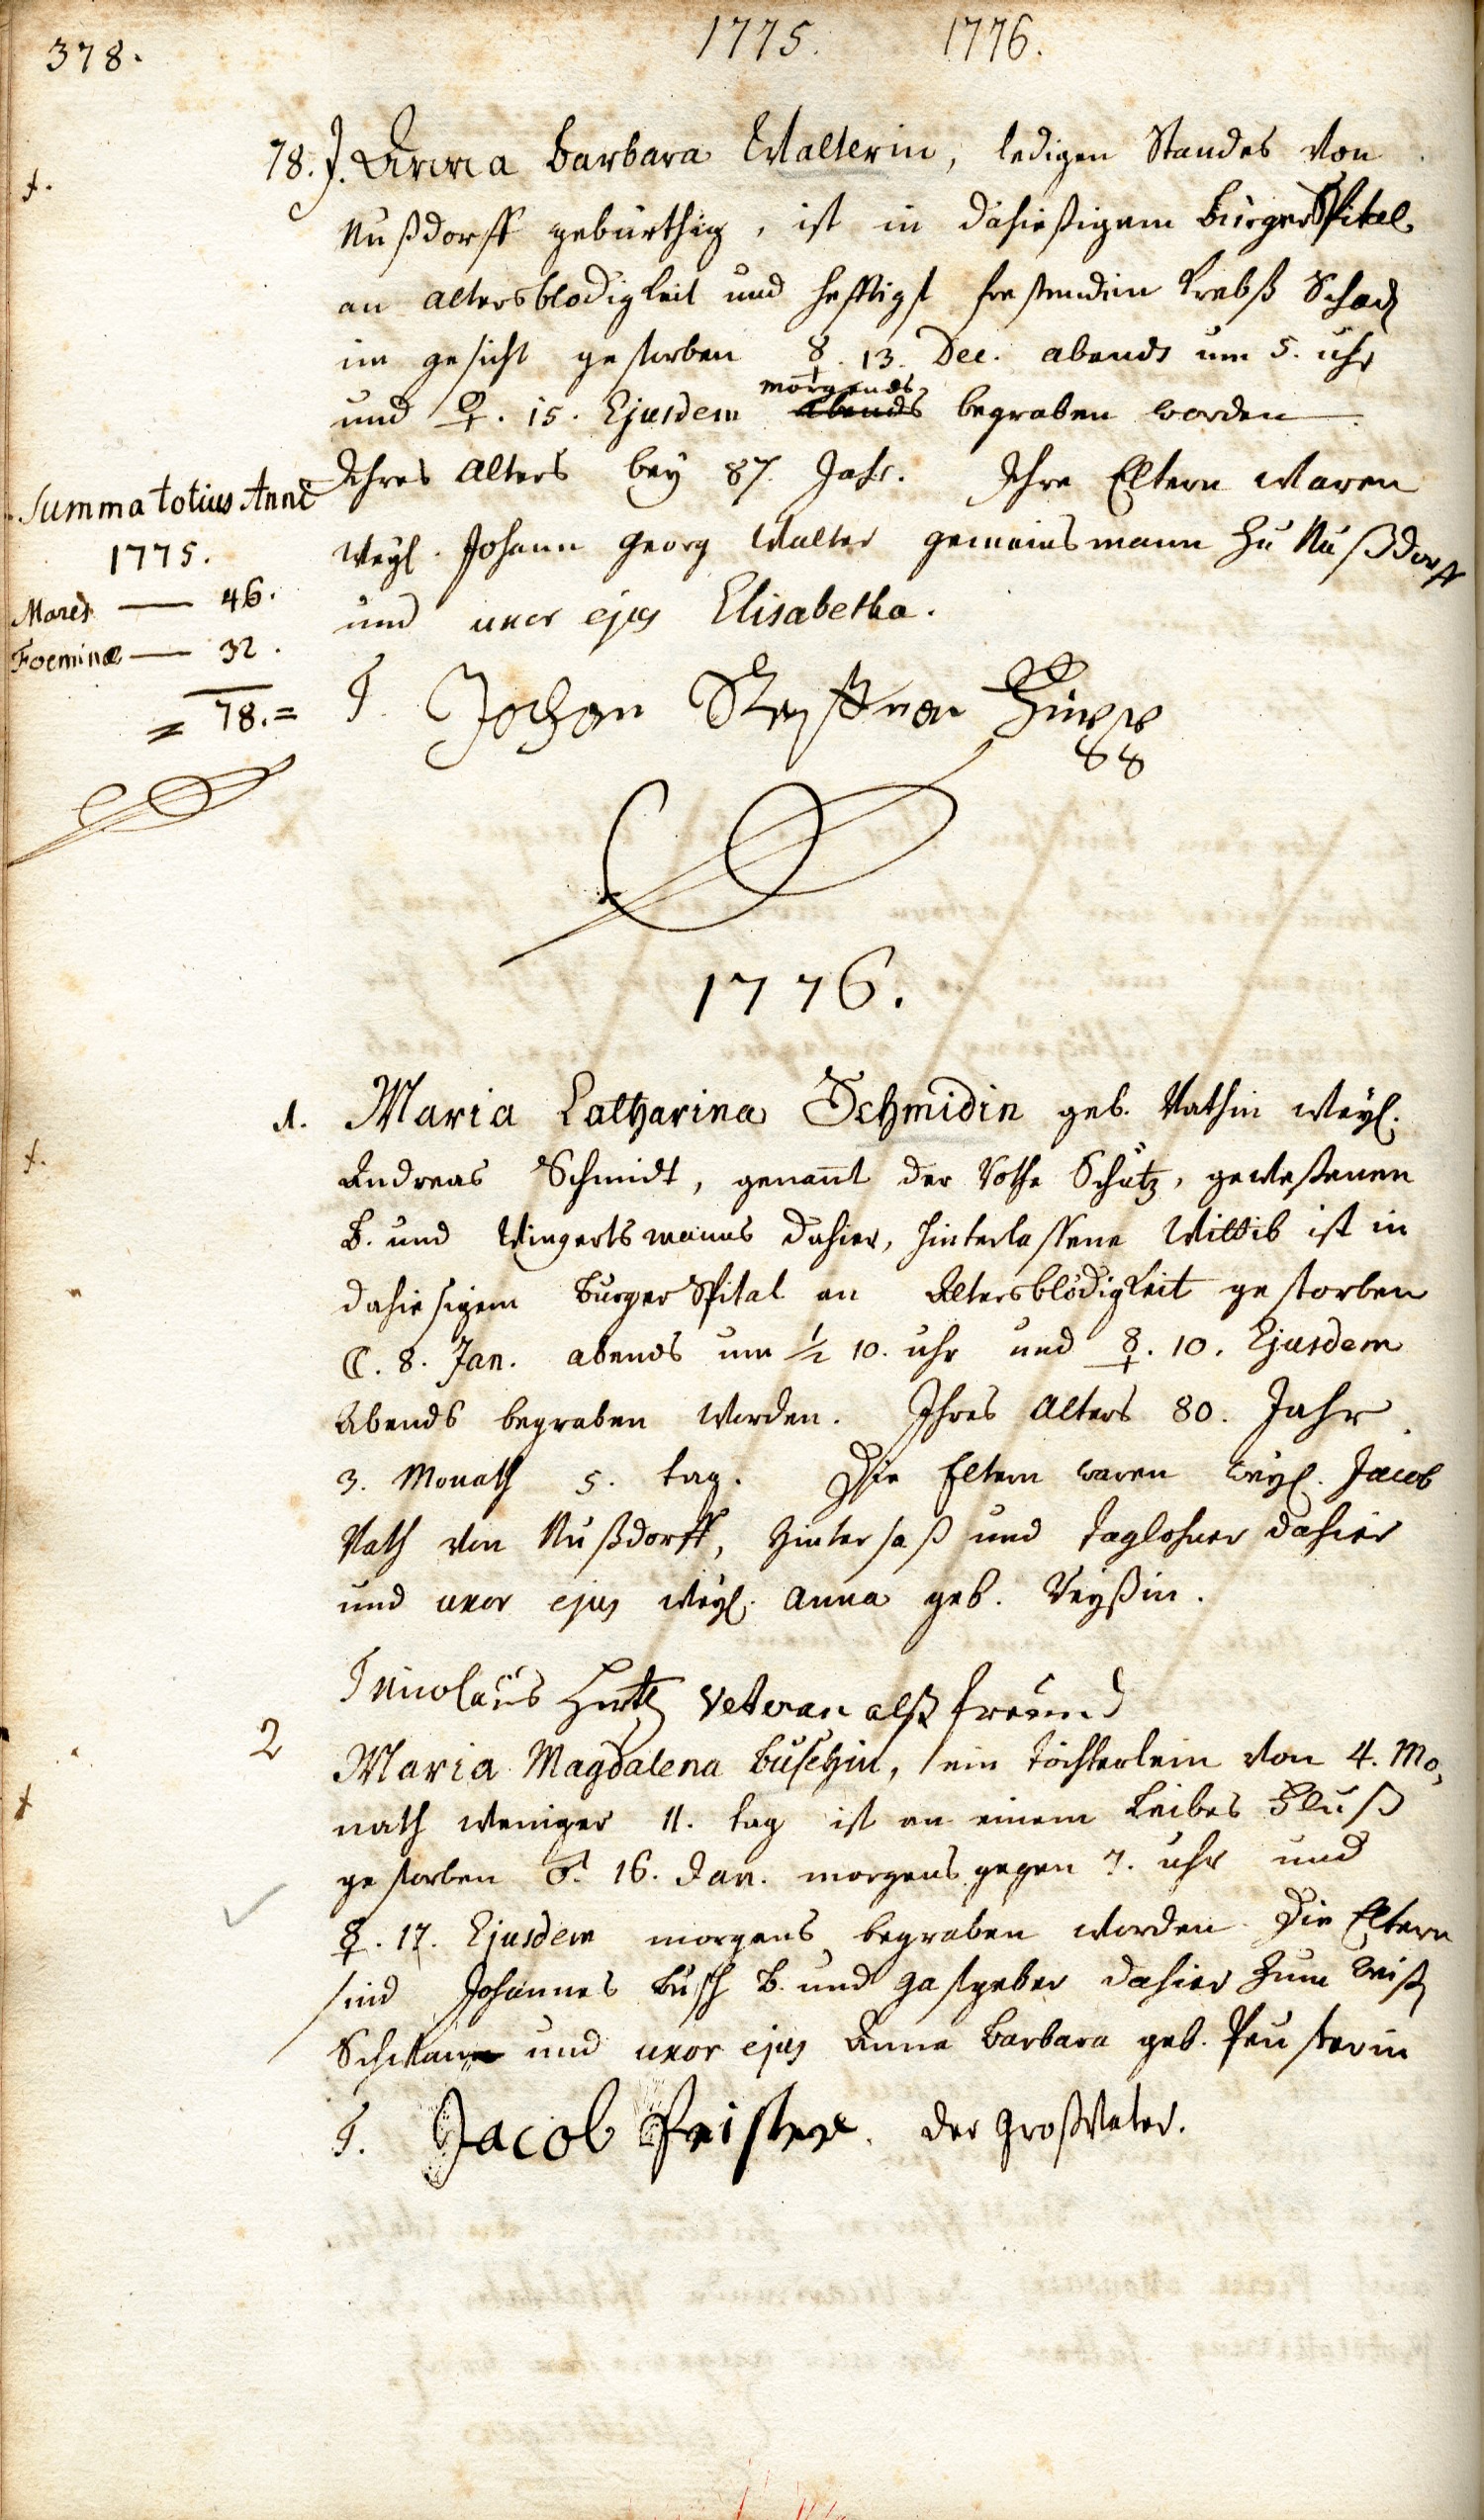 378.
1775. 1776.
78. J. Anna Barbara Walterin, ledigen Standes von
Nußdorff gebürthig, ist in dahießigem Burger Spital
an altersblödigkeit und hefftigst fressenden Krebß Schad
im gesicht gestorben ☿. 13. Dec. abends um 5. uhr
und ♀. 15. Ejusdem morgends abends begraben worden
Ihres Alters bey 87. Jahr. Ihre Eltern waren
weyl. Johann Georg Walter gemeinsmann zu Nußdorff
und uxor ejus Elisabetha.
Summa totius Anni
1775.
Mares — 46.
Foeminæ — 32.
= 78. =
T. Johan
1776.
1. Maria Catharina Schmidin geb. Vathin weyl.
Andreas Schmidt, genan̄t der rothe Schütz, geweßenen
B. und Wingertsmanns dahier, hinterlassene Wittib ist in
dahiesigem Burger Spital an Altersblödigkeit gestorben
☾. 8. Jan. abends um ½ 10. uhr und ☿. 10. Ejusdem
Abends begraben worden. Ihres Alters 80. Jahr
3. Monath 5. tag. Die Eltern waren weyl. Jacob
Vath von Nußdorff, Hintersaß und Taglohner dahier
und uxor ejus weyl. Anna geb. Reyßin.
T nicolaus Hirtz Veteran alß freund
2 Maria Magdalena Buschin, ein töchterlein von 4. Mo,
nath weniger 11. tag ist an einem Leibes Fluß
gestorben ♂. 16. Jan. morgens gegen 7. uhr und
☿. 17. Ejusdem morgens begraben worden. Die Eltern
sind Johannes Busch B. und gastgeber dahier zum weiß
Schwan und uxor ejus Anna Barbara geb. Peusterin
T. Jacob Peister. der Großvater.